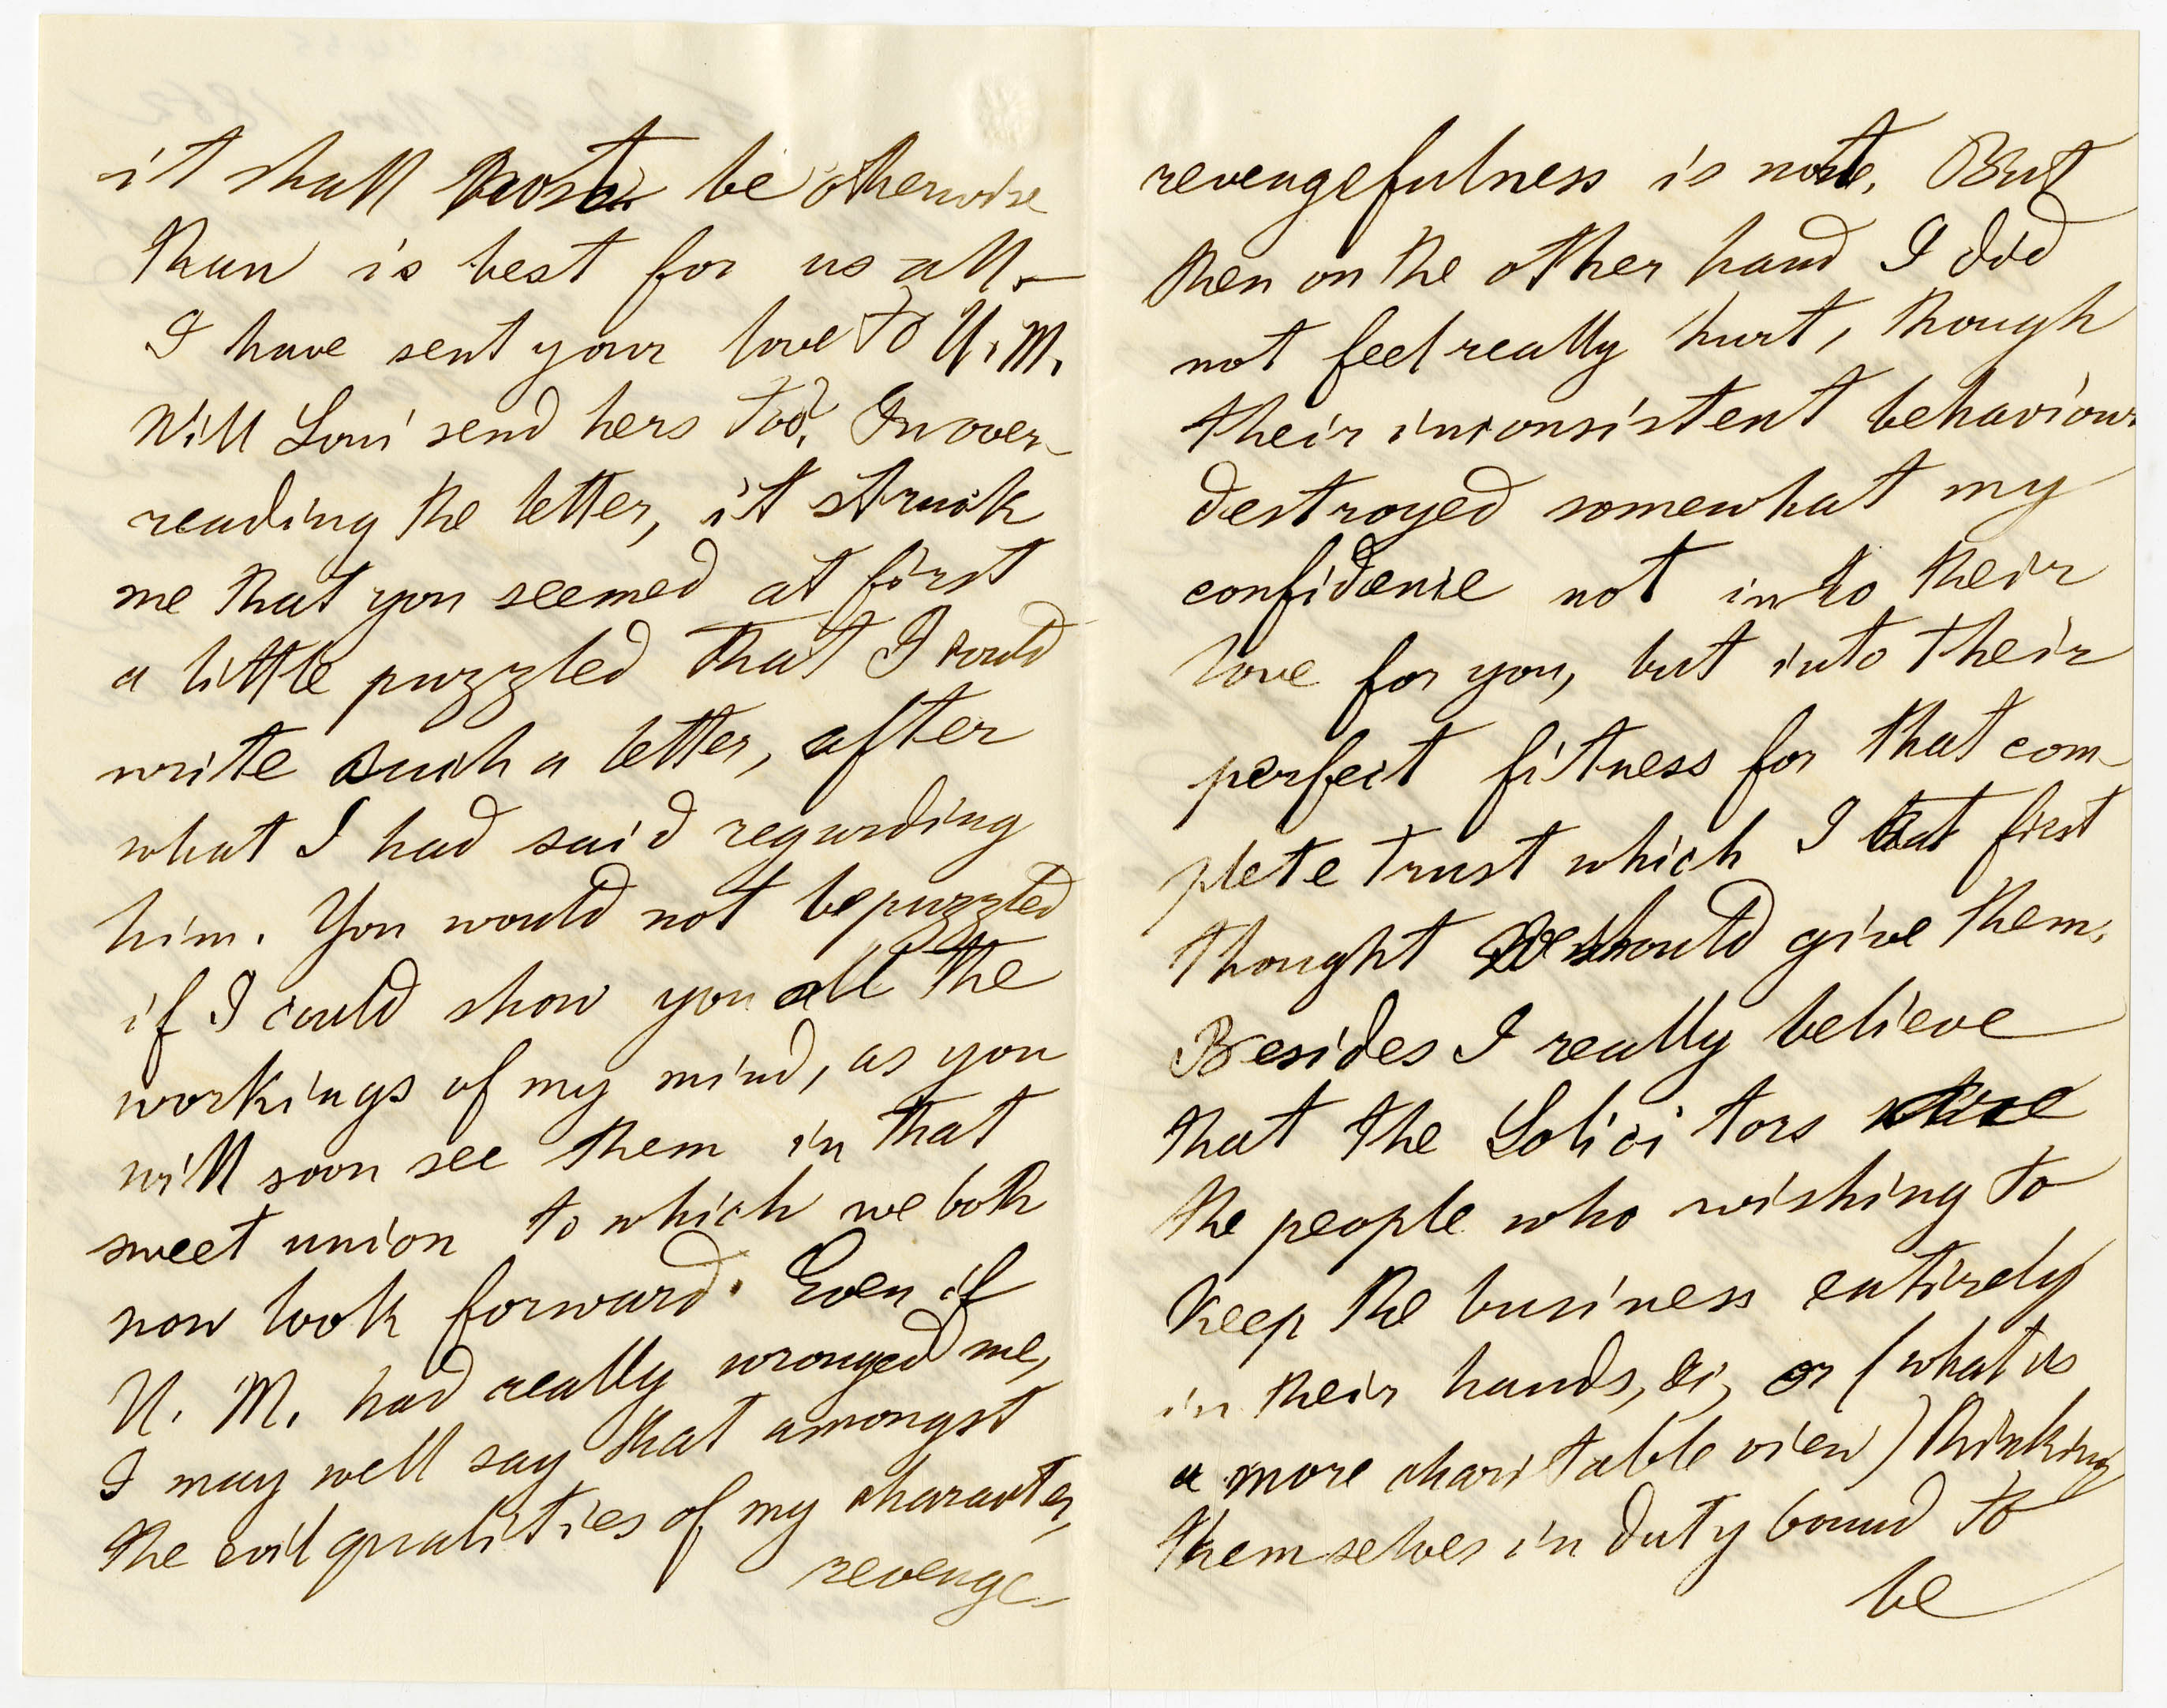 it shall not be otherwise
than is best for us all. —
I have sent your love to U. M.
Will Loui send hers too? In over-
reading the letter, it struck
me that you seemed at first
a little puzzled that I could
write such a letter, after
what I had said regarding
him. You would not be puzzled
if I could show you all the
workings of my mind, as you
will soon see them in that
sweet union to which we both
now look forward. Even if
U. M. had really wronged me,
I may well say that amongst
the evil qualities of my character,
revenge-
revengefulness is not. But
then on the other hand I did
not feel really hurt, though
their inconsistent behaviour
destroyed somewhat my
confidence not into their
love for you, but into their
perfect fitness for that com-
plete trust which I at first
thought we should give them.
Besides I really believe
that the Solicitors are
the people who wishing to
keep the business entirely
in their hands, or (what is
a more charitable view) thinking
themselves in duty bound to
be